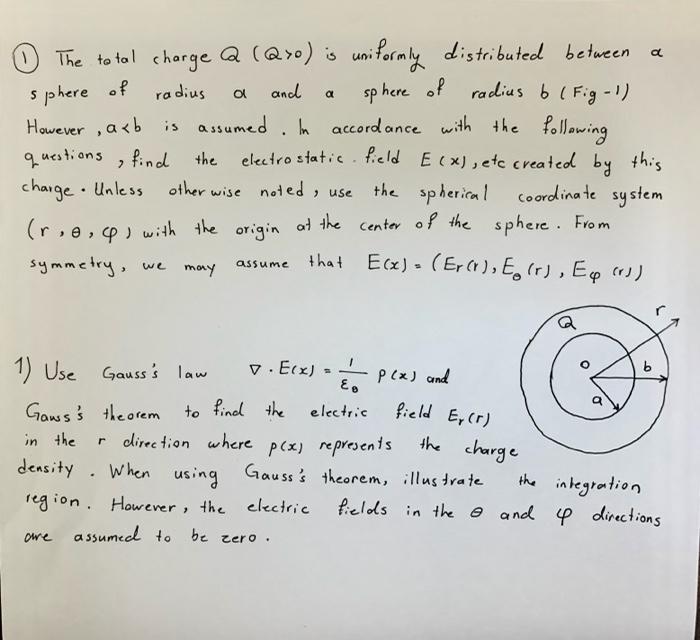 ① The total charge Q (Q>0) is uniformly distributed between a
sphere of radius a and a sphere of radius b (Fig-1)
However, a<b is assumed. In accordance with the following
questions, find the electrostatic. field E(x), etc created by this
charge. Unless otherwise noted, use the spherical coordinate system
(r, θ, φ) with the origin at the center of the sphere. From
symmetry, we may assume that E(x) = (Er(r), Eθ(r), Eφ(r))
r
Q
o
b
a
1) Use Gauss's law ∇ · E(x) = 1/ε0 ρ(x) and
Gauss's theorem to find the electric field Er(r)
in the r direction where ρ(x) represents the charge
density. When using Gauss's theorem, illustrate the integration
region. However, the electric fields in the θ and φ directions
are assumed to be zero.